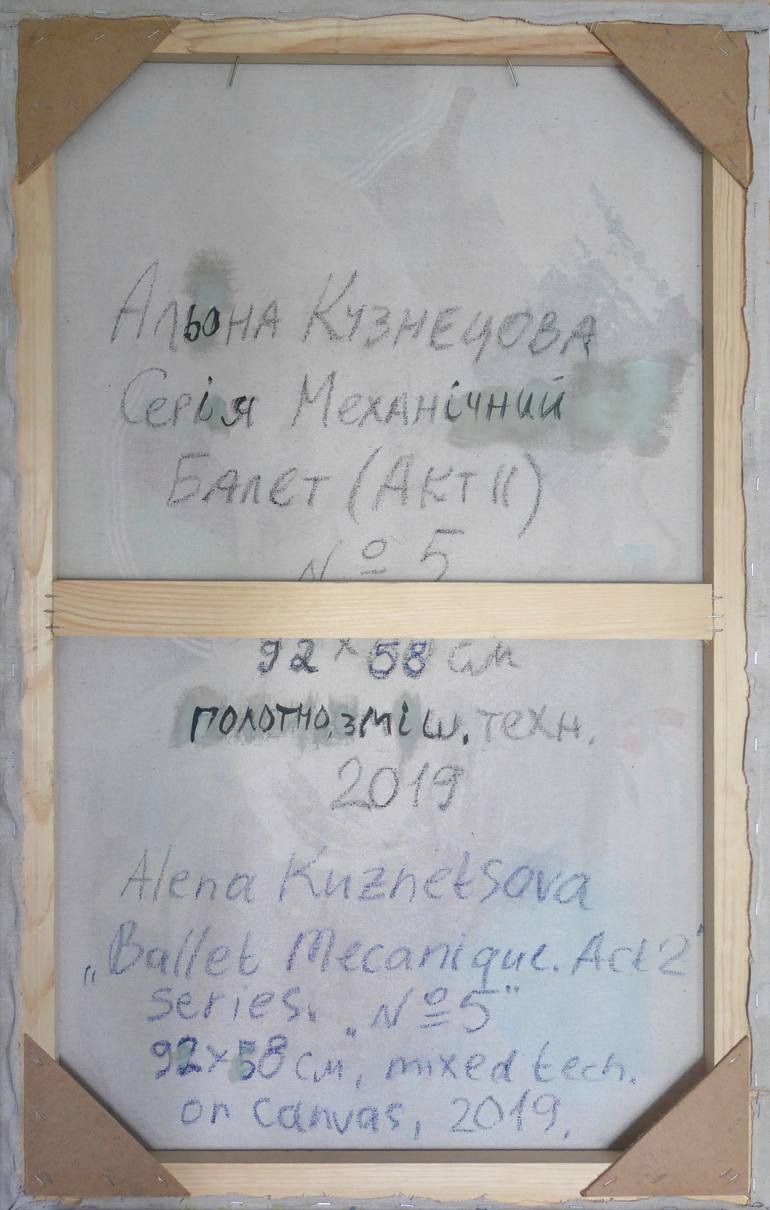 Альона Кузнецова
Серія Механічний
Балет (Акт II)
№ 5
92 x 58 см
полотно, зміш. техн.
2019
Alena Kuznetsova
„Ballet Mecanique. Act 2"
series. „№5"
92x58 см, mixed tech.
on canvas, 2019.